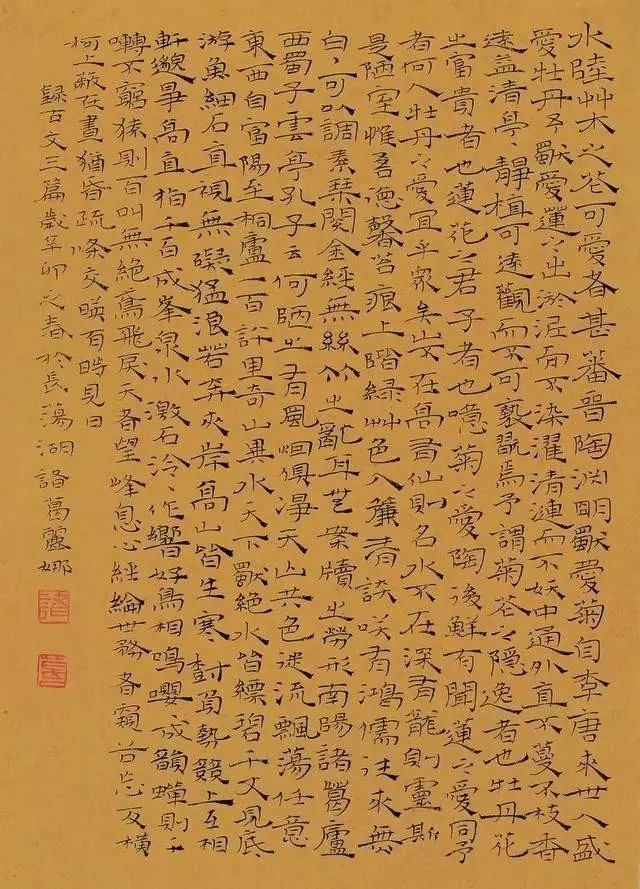 水陸艸木之花可愛者甚蕃晉陶渊明獨愛菊自李唐來世人盛
愛牡丹予獨愛蓮之出淤泥而不染濯清漣而不妖中通外直不蔓不枝香
遠益清亭〻靜植可遠觀而不可褻翫焉予謂菊花之隱逸者也牡丹花
之富貴者也蓮花之君子者也噫菊之愛陶後鮮有聞蓮之愛同予
者何人牡丹之愛宜乎眾矣山不在高有仙則名水不在深有龍則靈斯
是陋室惟吾德馨苔痕上階綠艸色入簾青談咲有鴻儒往來無
白丁可以調素琹閱金經無絲竹之亂耳無案牘之勞形南陽諸葛廬
西蜀子雲亭孔子云何陋之有風烟俱淨天山共色從流飄蕩任意
東西自富陽至桐廬一百許里奇山異水天下獨絕水皆縹碧千丈見底
游魚細石直視無礙猛浪若奔夾岸高山皆生寒樹負勢競上互相
軒邈爭高直指千百成峯泉水激石泠〻作響好鳥相鳴嚶〻成韻蟬則千
囀不窮猿則百叫無絕鳶飛戾天者望峰息心經綸世務者窺谷忘反橫
柯上蔽在晝猶昏疏條交映有時見日
錄古文三篇歲辛卯之春於長蕩湖諸葛麗娜